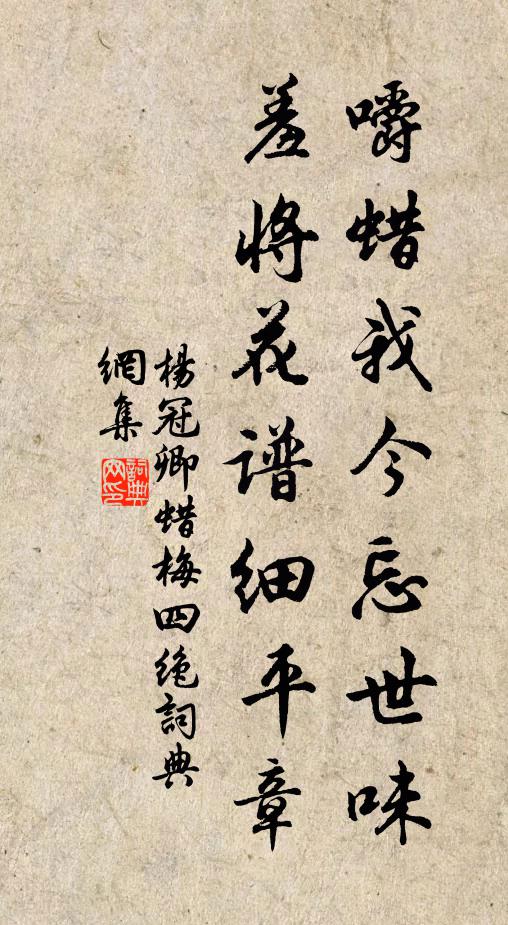 嚼蜡我今忘世味
羞将花谱细平章
楊冠卿蜡梅四絶詞典
網集
詞典
网印